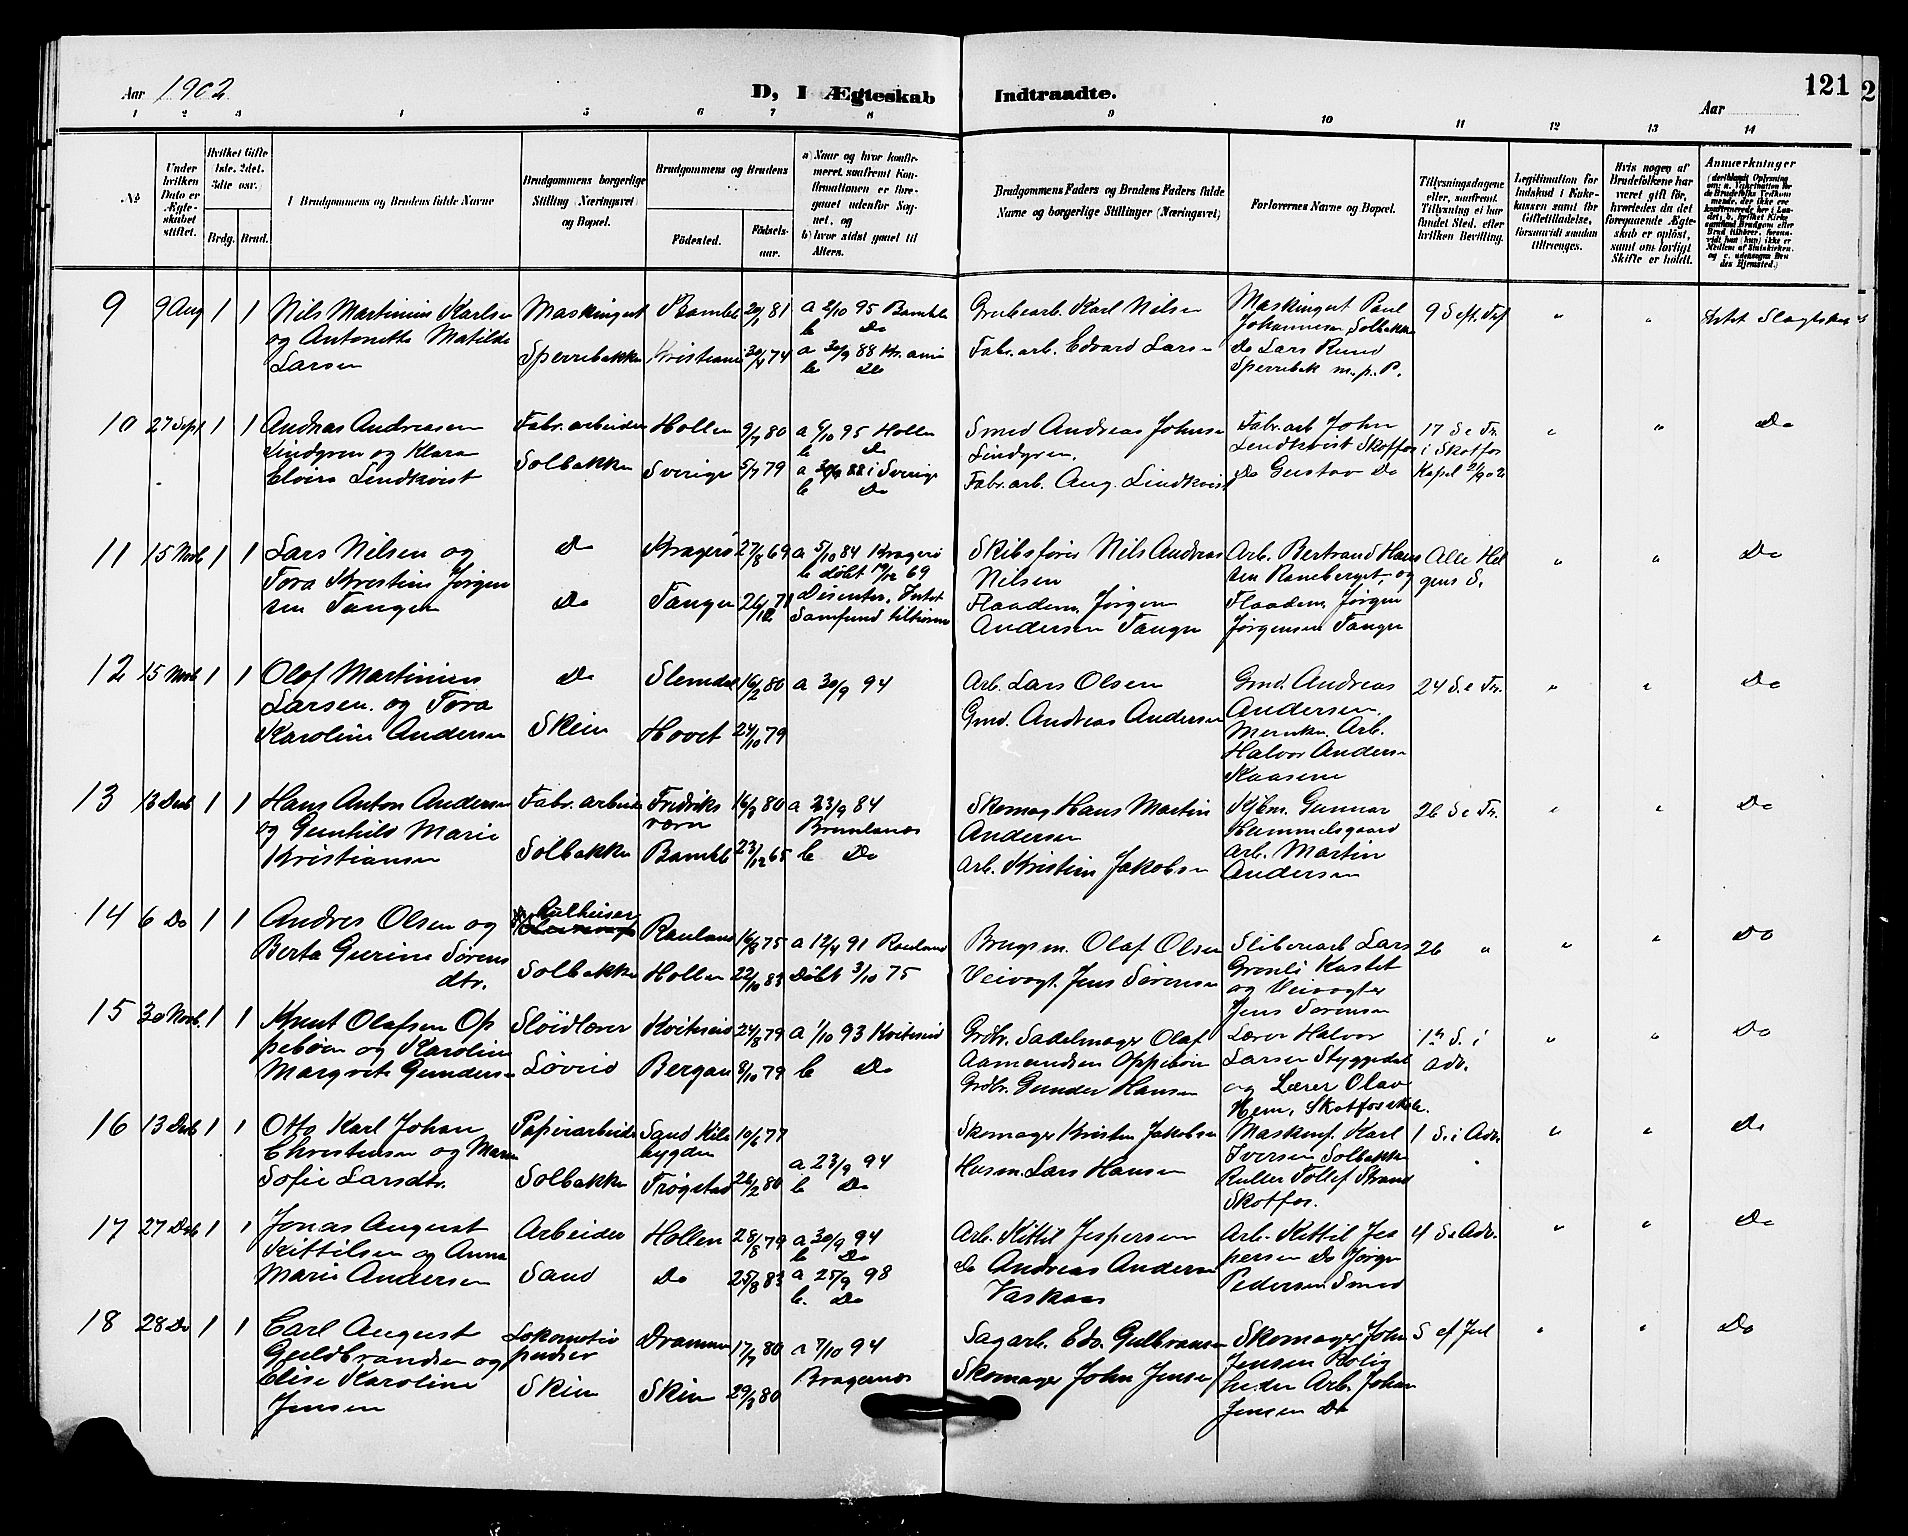 Aar 1902
D, I Ægteskab Indtraadte.
121
Aar
1 2 3 4 5 6 7 8 9 10 11 12 13 14
No
Under hvilken Dato er Ægteskabet stiftet.
Hvilket Gifte 1ste, 2det, 3die osv.
Brdg. Brud.
Brudgommens og Brudens fulde Navne
Brudgommens borgerlige Stilling (Næringsvei) og Bopæl.
Brudgommens og Brudens
Fødested.
Fødselsaar.
a) Naar og hvor konfirmeret, saafremt Konfirmationen er foregaaet udenfor Sognet, og
b) hvor sidst gaaet til Alters.
Brudgommens Faders og Brudens Faders fulde Navne og borgerlige Stillinger (Næringsvei)
Forlovernes Navne og Bopæl.
Tillysningsdagene eller, saafremt Tillysning ei har fundet Sted, efter hvilken Bevilling.
Legitimation for Indskud i Enkekassen samt for Giftetilladelse, forsaavidt saadan tiltrænges.
Hvis nogen af Brudefolkene har været gift før, hvorledes da det foregaaende Ægteskab er opløst, samt om lovligt Skifte er holdt.
Anmærkninger
9 9 Aug 1 1 Nils Martinius Karlsen og Antonette Matilde Larsen
Maskingut Sperrebakken
Bamble Kristiania
20/1 81 30/4 74
a 2/10 95 Bamble b Do
a 30/9 88 Kr.ania b Do
Grubearb. Karl Nilsen
Fabr. arb. Edvard Larsen
Maskingut Paul Johannesen, Solbakken
Do Lars Rund Sperrebak m. p. P.
9 S eft. Tref
" "
Intet Slægtskab
10 27 Sept 1 1 Andreas Andreasen Lindgren og Klara Elvira Lindkvist
Fabr. arbeider Solbakken
Hollen Sverige
9/7 80 5/7 79
a 6/10 95 Hollen b Do
a 30/9 88 i Sverige b Do
Smed Andreas Johnsen Lindgren.
Fabr. arb. Aug. Lindkvist
Fabr. arb John Lindkvist Skotfos
Do Gustav Do
17 S e Tr. i Skotfos Kapel 21/9 02
" "
Do
11 15 Novb 1 1 Lars Nilsen og Tora Kristine Jørgensen Tangen
Do Do
Kragerø Tangen
27/8 69 26/12 71
a 5/10 84 Kragerø b døbt 19/12 69
Disenter. Intet Samfund tilhørende
Skibsfører Nils Andreas Nilsen
Flaadem. Jørgen Andersen Tangen
Arb. Bertrand Hansen Raneberget, og Flaadem. Jørgen Jørgensen Tangen
Alle Helgens S.
" "
Do
12 15 Novb 1 1 Olaf Martinius Larsen. og Tora Karoline Andersen
Do Skien
Slemdal Hovet
16/2 80 24/10 79
a 30/9 94
Arb. Lars Olsen
Gmd. Andreas Andersen
Gmd. Andreas Andersen, Arb. Halvor Andersen Kaasene
24 S. e Tr.
" "
Do
13 13 Decb 1 1 Hans Anton Andersen og Gunhild Marie Kristiansen
Fabr. arbeider Solbakken
Fredriksværn Bamble
16/9 80 23/12 65
a 23/9 84 Brunlanes
b Do
Skomag. Hans Martin Andersen
Arb. Kristian Jakobsen
Kjbm. Gunnar Hummelsgaard
Arb. Martin Andersen
26 S e Tr.
" "
Do
14 6 Do 1 1 Andres Olsen og Berta Gurine Sørensdtr.
Solbakken
Rauland Hollen
16/8 75 22/10 83
a 12/4 91 Rauland
Døbt 3/10 75
Brugsm. Olaf Olsen
Veivogt. Jens Sørensen
Sliberiarb Lars Grosli Kastet og Veivogter Jens Sørensen
26 "
" "
Do
15 30 Novb. 1 1 Knut Olafsen Oppebøen og Karoline Margrete Gundersen
Sløidlærer Løveid
Kviteseid Bergan
24/8 79 8/10 79
a 1/10 93 Kviteseid
b Do
Grdbr. Sadelmager Olaf Aamundsen Oppebøen
Grdbr. Gunder Hansen
Lærer Halvor Larsen Styggedal og Lærer Olav Hem, Skotfos skole.
1ste S. i Adv.
" "
Do
16 13 Decb 1 1 Otto Karl Johan Christensen og Maren Sofie Larsdtr.
Papirarbeider Solbakken
Sand Kilebygden Trøgstad
19/6 77 26/2 80
a 23/9 94 b Do
Skomager Kristen Jakobsen
Husm. Lars Hansen
Maskinf. Karl Iversen Solbakken
Ruller Tollef Strand Skotfos.
1 S. i Adv.
" "
Do
17 27 Decb 1 1 Jonas August Kittilsen og Anna Marie Andersen
Arbeider Sand
Hollen Do
28/8 79 25/8 83
a 30/9 94 b Do
a 25/9 98 b. Do
Arb. Kittil Jespersen
Do Andreas Andersen Vaskaas
Arb. Kittil Jespersen Do Jørgen Pedersen Smed
4 S e Adv.
" "
Do
18 28 Do 1 1 Carl August Guldbrandsen og Elise Karoline Jensen
Lokomotivpudser Skien
Drammen Skien
17/7 80 29/3 80
a 7/10 94 Bragernes
Sagarb. Edv. Gulbransen
Skomager John Jensen
Skomager John Jensen Arb. Johan Jensen Do
S ef Jul
" "
Do